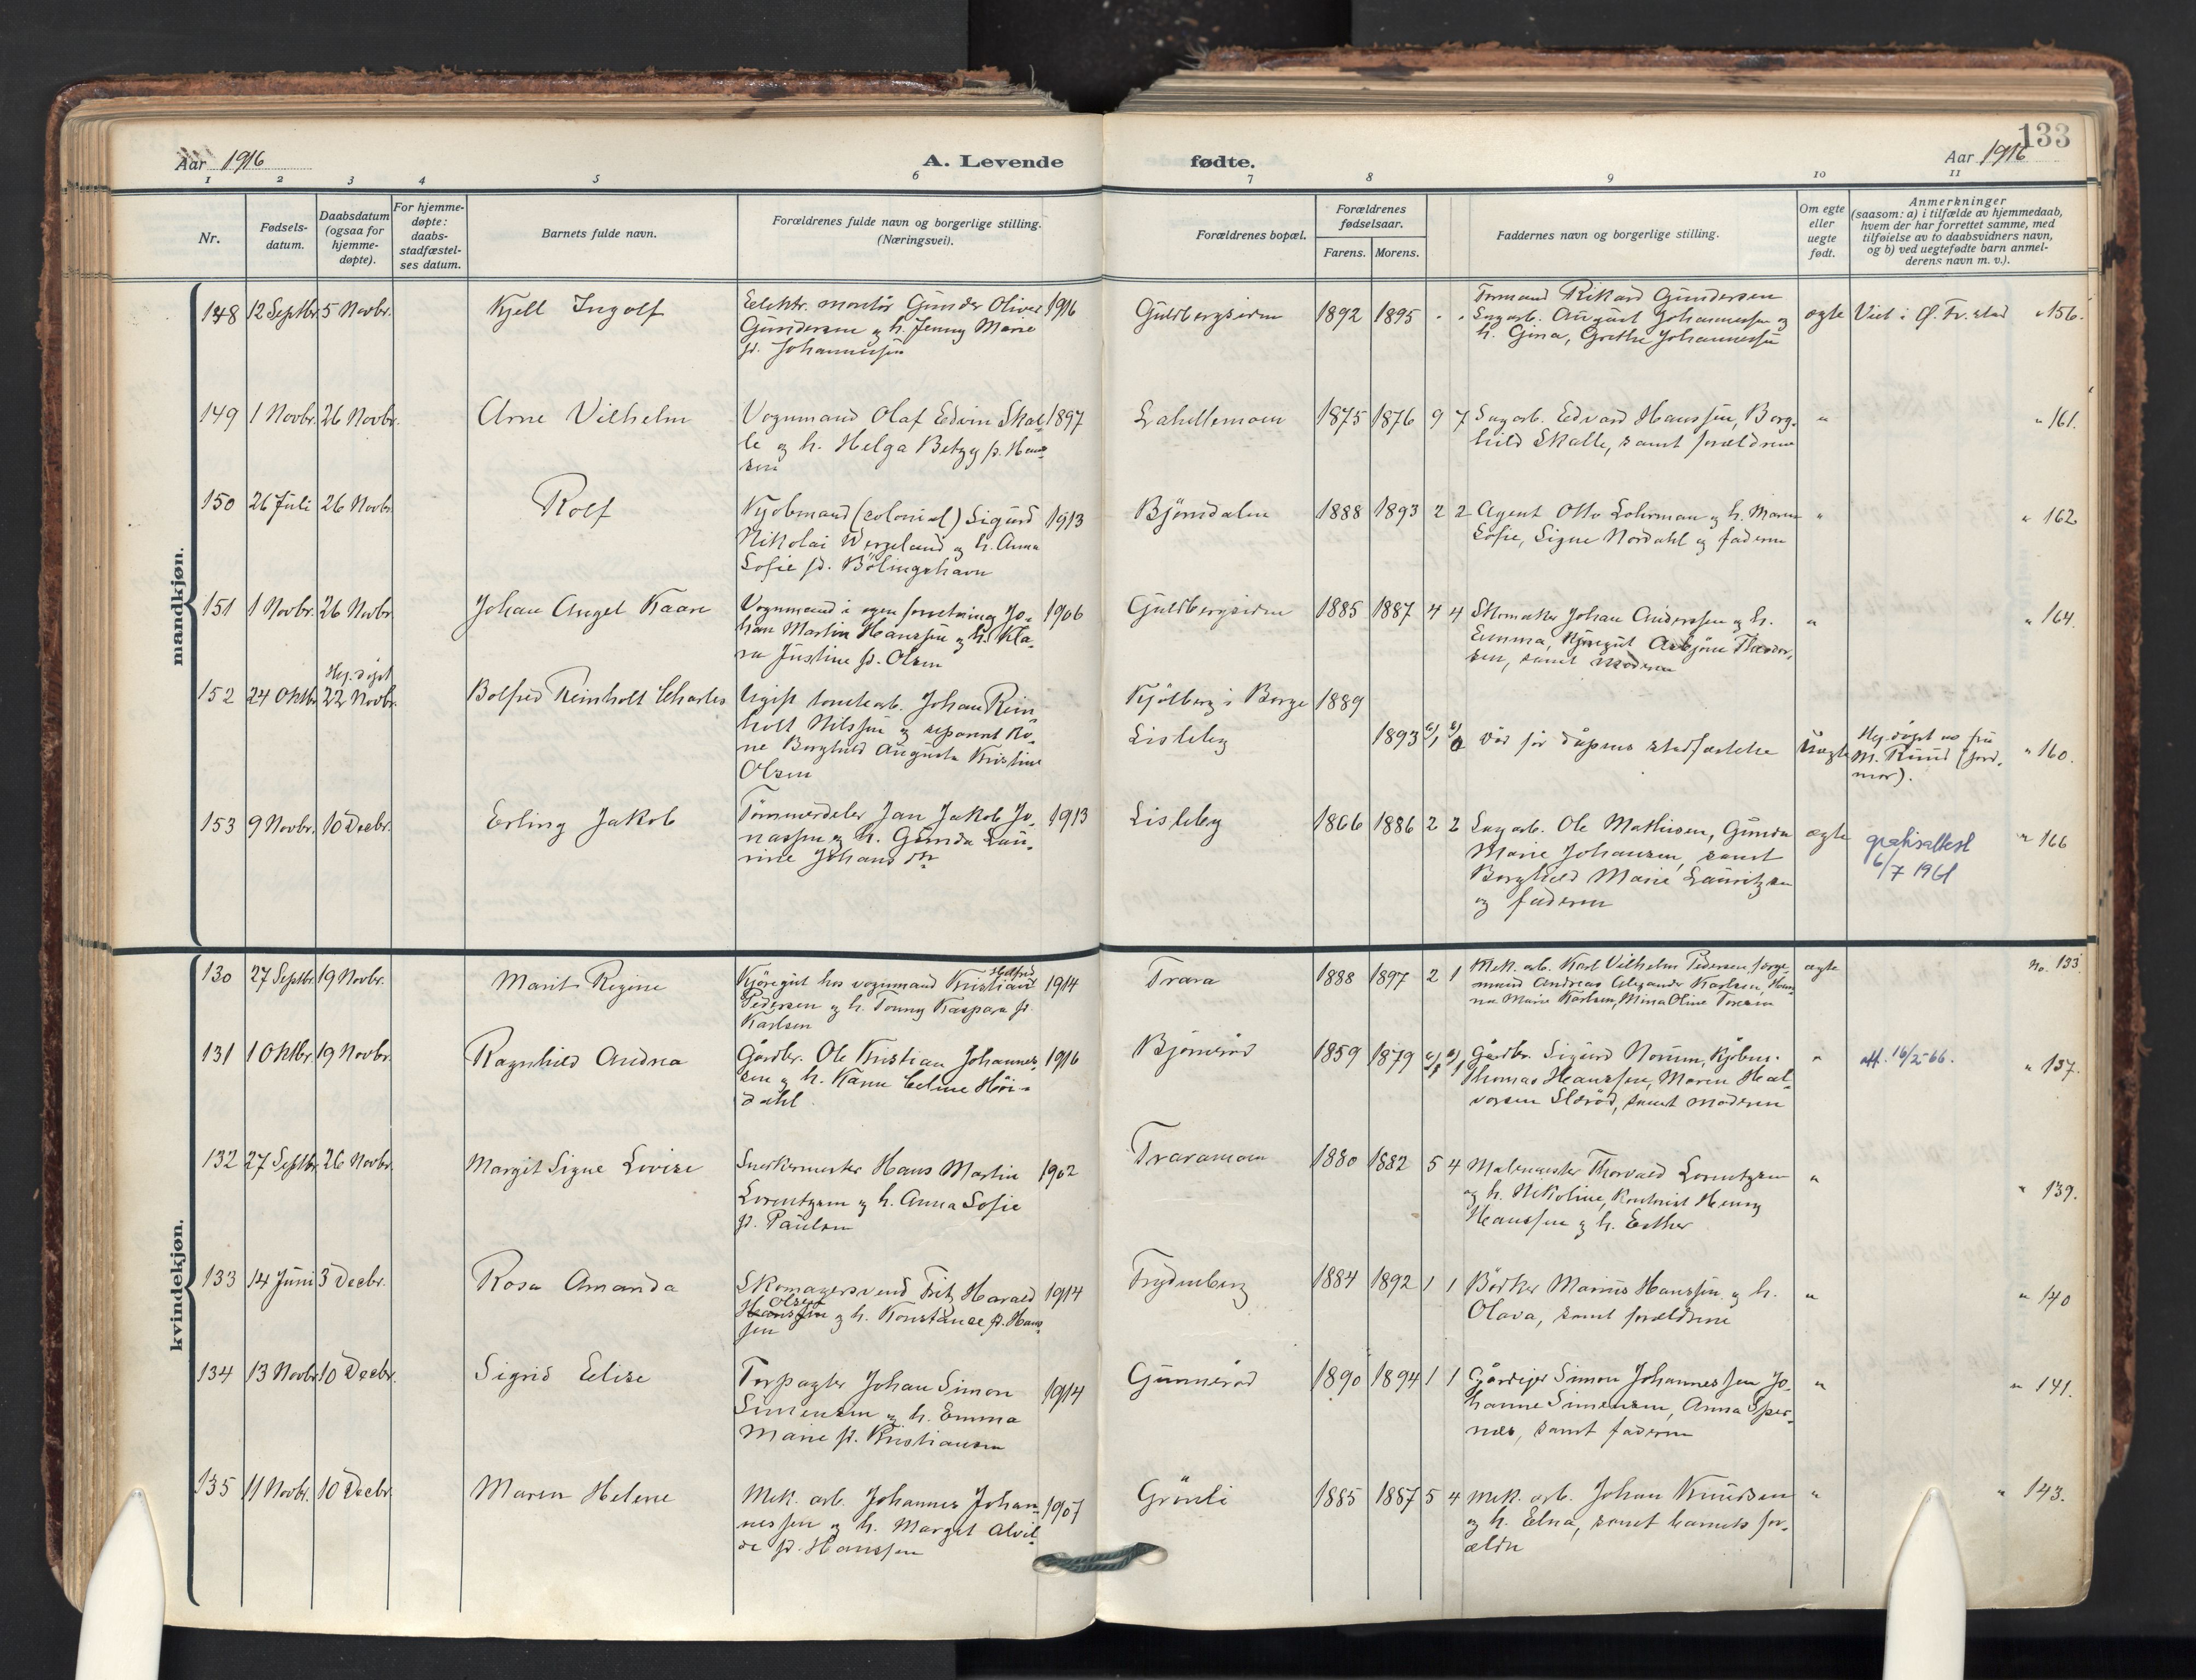 133
Aar 1916
A. Levende
fødte.
Aar 1916
1 2 3 4 5 6 7 8 9 10 11
Nr.
Fødsels-
datum.
Daabsdatum
(ogsaa for
hjemme-
døpte).
For hjemme-
døpte:
daabs-
stadfæstel-
ses datum.
Barnets fulde navn.
Forældrenes fulde navn og borgerlige stilling.
(Næringsvei).
Forældrenes bopæl.
Forældrenes
fødselsaar.
Farens. Morens.
Faddernes navn og borgerlige stilling.
Om egte
eller
uegte
født.
Anmerkninger
(saasom: a) i tilfælde av hjemmedaab,
hvem der har forrettet samme, med
tilføielse av to daabsvidners navn,
og b) ved uegtefødte barn anmel-
derens navn m. v.).
mandkjøn.
148 12 Septbr. 5 Novbr. Kjell Ingolf
Elektr. montör Gunder Oliver 1916
Gundersen og h. Jenny Marie
f. Johannessen
Guldbergsiden 1892 1895 - -
Formand Rikard Gundersen
Sagarb. August Johannessen og
h. Gina, Grethe Johannessen
ægte Viet i Ø. Fr.stad " 156.
149 1 Novbr. 26 Novbr. Arne Vilhelm
Vognmand Olaf Edvin Skal- 1897
le og h. Helga Betzy f. Han-
sen
Lahellemoen 1875 1876 9 7
Sagarb. Edvard Hanssen, Borg-
hild Skalle, samt forældrene " " 161.
150 26 Juli 26 Novbr. Rolf
Kjøbmand (colonial) Sigurd 1913
Nikolai Wergeland og h. Anna
Sofie f. Bölingshavn
Björndalen 1888 1893 2 2
Agent Otto Lohrman og h. Maren
Sofie, Signe Nordahl og faderen " " 162
151 1 Novbr. 26 Novbr. Johan Angel Kaare
Vognmand i egen forretning Jo- 1906
han Martin Hanssen og h. Kla-
ra Justine f. Olsen
Guldbergsiden 1885 1887 4 4
Skomaker Johan Anderssen og h.
Emma, Kjøregut Asbjörn Theodor-
sen, samt moderen " " 164.
Hj. døpt
152 24 Oktbr. 22 Novbr. Bolfred Reinholt Charles
Ugift tomtearb. Johan Rein-
holt Nilssen og separert ko-
ne Borghild Augusta Kristine
Olsen
Kjölberg i Borge 1889
Lisleby 1893
Var før dåpens stadfæstelse
Uægte
Hj. døpt av fru
M. Ruud (jord-
mor). " 160.
153 9 Novbr. 10 Decbr. Erling Jakob
Tömmerdeler Jan Jakob Jo- 1913
nassen og h. Gunda Lau-
rine Johans dtr
Lisleby 1866 1886 2 2
Sagarb. Ole Mathisen, Gunda
Marie Johansen, samt
Borghild Marie Lauritzen
og faderen
ægte
gratisattest
6/7 1961
" 166
kvindekjøn.
130 27 Septbr. 19 Novbr. Marit Regine
Kjöregut hos vognmand Kristian 1914
Pedersen og h. Tonny Kaspara f.
Karlsen
Trara 1888 1897 2 1
Mek. arb. Karl Vilhelm Pedersen, forge-
mand Andreas Alexander Karlsen, Han-
na Marie Karlsen, Mina Oline
ægte No. 133
131 1 Oktbr. 19 Novbr. Ragnhild Andrea
Gårdbr. Ole Kristian Johannes- 1916
sen og h. Karen Celine Höi-
dahl
Björneröd 1859 1879
Gårdbr. Sigurd Norum, Kjøbm.
Thomas Hanssen, Maren Hal-
vorsen Sleröd, samt moderen
" att. 16/2-66. " 137.
132 27 Septbr. 26 Novbr. Margit Signe Lovise
Snekkermester Hans Martin 1902
Lorentzen og h. Anna Sofie
f. Paulsen
Traramoen 1880 1882 5 4
Malemester Thorvald Lorentzen
og h. Nikoline, Kontorist Henry
Hanssen og h. Esther " " 139.
133 14 Juni 3 Decbr. Rosa Amanda
Skomagersvend Fritz Harald 1914
Olsen
Hanssen og h. Konstance f. Hans-
sen
Frydenberg 1884 1892 1 1
Bödker Marius Hanssen og h.
Olava, samt forældrene " " 140
134 13 Novbr. 10 Decbr. Sigrid Elise
Forpagter Johan Simon 1914
Simensen og h. Emma
Marie f. Kristiansen
Gunneröd 1890 1894 1 1
Gårdejer Simon Johannessen, Jo-
hanne Simensen, Anna Sper-
nes, samt faderen " " 141.
135 11 Novbr. 10 Decbr. Maren Helene
Mek. arb. Johannes Johan- 1907
nessen og h. Margit Alvil-
de f. Hanssen
Grönli 1885 1887 5 4
Mek. arb. Johan Knudsen
og h. Elna, samt barnets for-
ældre " " 143.